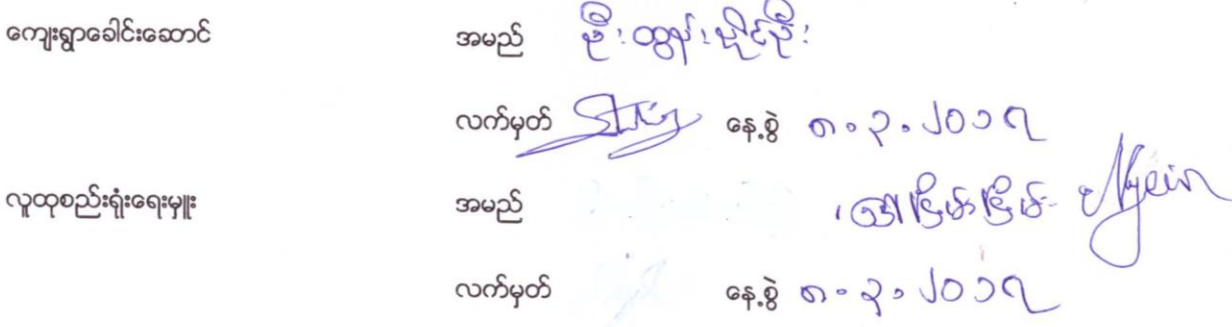 ကျေးရွာခေါင်းဆောင် အမည် ဦးထွန်းလှိုင်ဦး
လက်မှတ် နေ့စွဲ ၈.၃.၂၀၁၇
လူထုစည်းရုံးရေးမှူး အမည် ဒေါ်ငြိမ်းငြိမ်း Nyein
လက်မှတ် နေ့စွဲ ၈.၃.၂၀၁၇